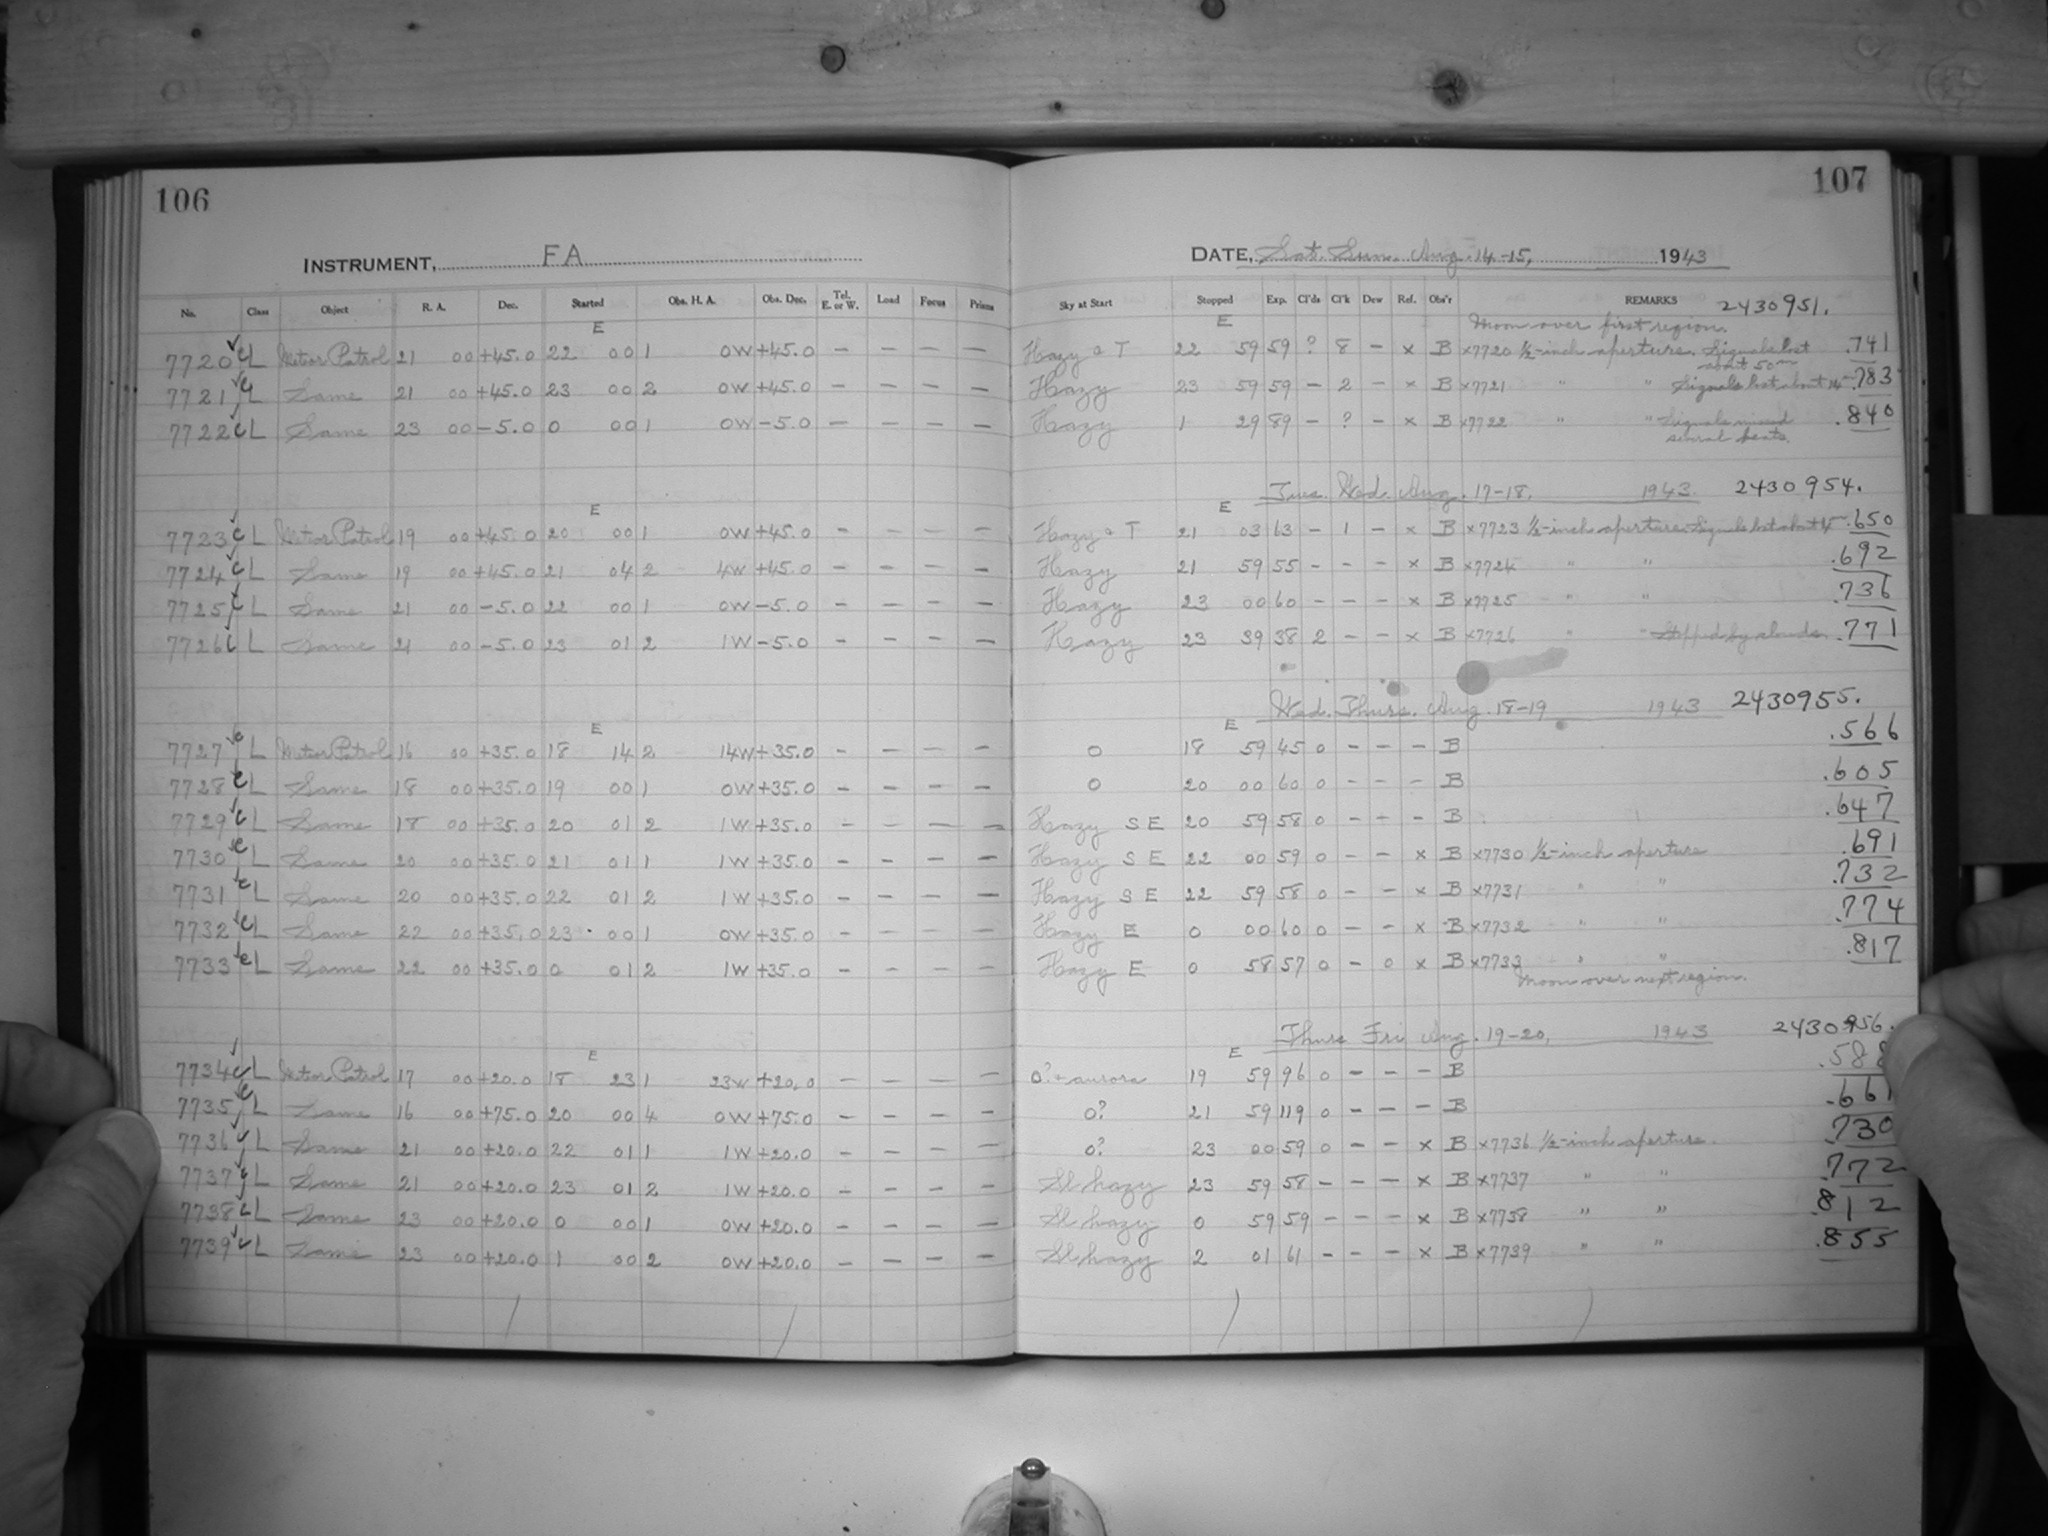 106
107
INSTRUMENT, FA
DATE, Sat. Sun. Aug. 14-15, 1943
No. Class Object R. A. Dec. Started Obs. H. A. Obs. Dec. Tel. E. or W. Load Focus Prisms Sky at Start Stopped Exp. Cl'ds Cl'k Dew Ref. Obs'r REMARKS 2430951.
E E Moon over first region.
7720 c L Meteor Patrol 21 00 +45.0 22 00 1 0W +45.0 - - - - Hazy a T 22 59 59 ? 8 - x B x7720 1/2-inch aperture. Signals lost about 50m .741
7721 c L Same 21 00 +45.0 23 00 2 0W +45.0 - - - - Hazy 23 59 59 - 2 - x B x7721 " " Signals lost about 14m .783
7722 c L Same 23 00 -5.0 0 00 1 0W -5.0 - - - - Hazy 1 29 89 - ? - x B x7722 " " Signals missed several beats. .840
Tues. Wed. Aug. 17-18, 1943 2430954.
E E
7723 c L Meteor Patrol 19 00 +45.0 20 00 1 0W +45.0 - - - - Hazy a T 21 03 63 - 1 - x B x7723 1/2-inch aperture. Signals lost about .650
7724 c L Same 19 00 +45.0 21 04 2 4W +45.0 - - - - Hazy 21 59 55 - - - x B x7724 " " .692
7725 c L Same 21 00 -5.0 22 00 1 0W -5.0 - - - - Hazy 23 00 60 - - - x B x7725 " " .736
7726 c L Same 21 00 -5.0 23 01 2 1W -5.0 - - - - Hazy 23 39 38 2 - - x B x7726 " " Stopped by clouds. .771
Wed. Thurs. Aug. 18-19 1943 2430955.
E E
7727 c L Meteor Patrol 16 00 +35.0 18 14 2 14W +35.0 - - - - 0 18 59 45 0 - - - B .566
7728 c L Same 18 00 +35.0 19 00 1 0W +35.0 - - - - 0 20 00 60 0 - - - B .605
7729 c L Same 18 00 +35.0 20 01 2 1W +35.0 - - - - Hazy S E 20 59 58 0 - - - B .647
7730 c L Same 20 00 +35.0 21 01 1 1W +35.0 - - - - Hazy S E 22 00 59 0 - - x B x7730 1/2-inch aperture .691
7731 c L Same 20 00 +35.0 22 01 2 1W +35.0 - - - - Hazy S E 22 59 58 0 - - x B x7731 " " .732
7732 c L Same 22 00 +35.0 23 00 1 0W +35.0 - - - - Hazy E 0 00 60 0 - - x B x7732 " " .774
7733 c L Same 22 00 +35.0 0 01 2 1W +35.0 - - - - Hazy E 0 58 57 0 - 0 x B x7733 " " .817
Moon over next region.
Thurs Fri Aug. 19-20, 1943 2430956.
E E
7734 c L Meteor Patrol 17 00 +20.0 18 23 1 23W +20.0 - - - - 0? + aurora 19 59 96 0 - - - B .588
7735 c L Same 16 00 +75.0 20 00 4 0W +75.0 - - - - 0? 21 59 119 0 - - - B .661
7736 c L Same 21 00 +20.0 22 01 1 1W +20.0 - - - - 0? 23 00 59 0 - - x B x7736 1/2-inch aperture. .730
7737 c L Same 21 00 +20.0 23 01 2 1W +20.0 - - - - Sl hazy 23 59 58 - - - x B x7737 " " .772
7738 c L Same 23 00 +20.0 0 00 1 0W +20.0 - - - - Sl hazy 0 59 59 - - - x B x7738 " " .812
7739 c L Same 23 00 +20.0 1 00 2 0W +20.0 - - - - Sl hazy 2 01 61 - - - x B x7739 " " .855